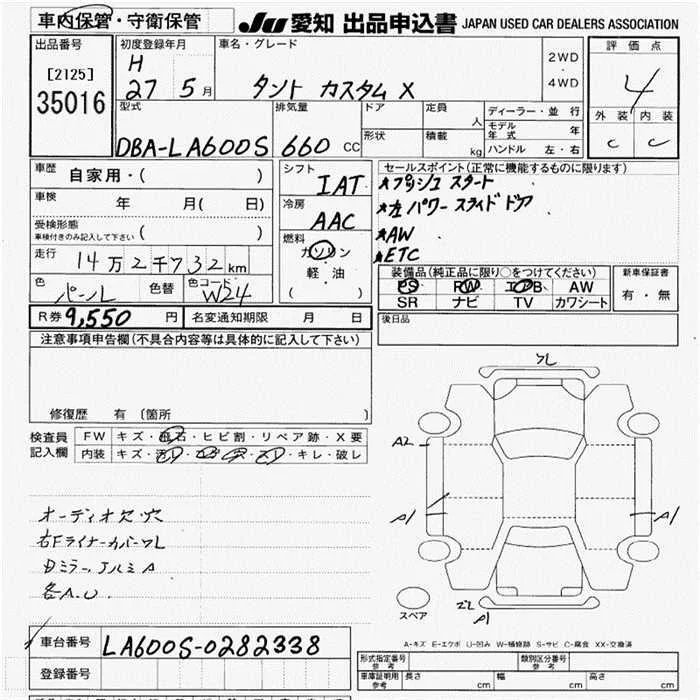 車内保管・守衛保管 JU 愛知 出品申込書 JAPAN USED CAR DEALERS ASSOCIATION
出品番号 初度登録年月 車名・グレード 2WD 評価点
[2125] H ・ 4
35016 27 5月 タント カスタム X 4WD 外装 内装
型式 排気量 ドア 定員 人 ディーラー・並行 C C
DBA-LA600S 660 CC 形状 積載 kg モデル年式 年
ハンドル 左・右
車歴 自家用・( ) シフト IAT セールスポイント(正常に機能するものに限ります)
車検 年 月( 日) 冷房 AAC ★プッシュスタート
受検形態 ( ) ★左パワースライドドア
車検付きのみ記入して下さい 燃料 ★AW
走行 14万2千732km ガソリン ★ETC
軽・油 装備品(純正品に限り○をつけてください) 新車保証書
色 パール 色替 色コード W24 ( ) PS PW エアB AW 有・無
SR ナビ TV カワシート
R券 9,550円 名変通知期限 月 日 後日品
注意事項申告欄(不具合内容等は具体的に記入して下さい)
修復歴 有 〔箇所 〕
検査員 FW キズ・飛石・ヒビ割・リペア跡・X要
記入欄 内装 キズ・汚レ・コゲ・穴・スレ・キレ・破レ
オーディオ欠・穴
右Fライナーカバーワレ
各A.U.
フレ
A2
A1
A1
A1
スペア
A-キズ E-エクボ U-凹み W-補修跡 S-サビ C-腐食 XX-交換済
車台番号 LA600S-0282338
登録番号
形式指定番号 参考 類別区分番号 参考
車庫証明用 参考 長さ cm 幅 cm 高さ cm